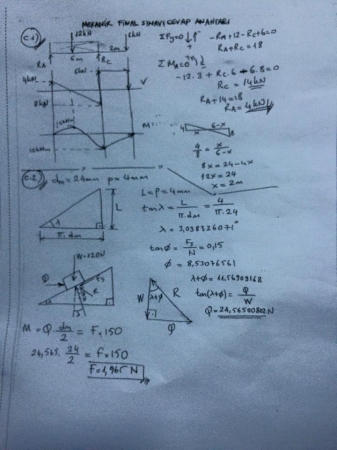 MEKANİK FİNAL SINAVI CEVAP ANAHTARI
C-1)
12kN
6kN
6m
2m
RA
RC
ΣFy=0 ↓+
-RA+12-RC+6=0
RA+RC=18
ΣMA=0
-12.3+RC.6-6.8=0
RC=14kN
RA+14=18
RA=4kN
4kN
6kN
V
8kN
M
12kNm
4
6-x
x
8
4/8 = x/6-x
8x=24-4x
12x=24
x=2m
C-2) dm=24mm p=4mm
L=p=4mm
tanλ = L/π.dm = 4/π.24
λ=3,038326071°
L
λ
π.dm
tanΦ = Fs/N = 0,15
Φ=8,53076561
λ+Φ=11,56909168
tan(λ+Φ) = Q/W
Q=24,56500802N
W=120N
Q
Fs
R
W
λ+Φ
R
Q
M = Q. dm/2 = F.150
24,565. 24/2 = F.150
F=1,965 N